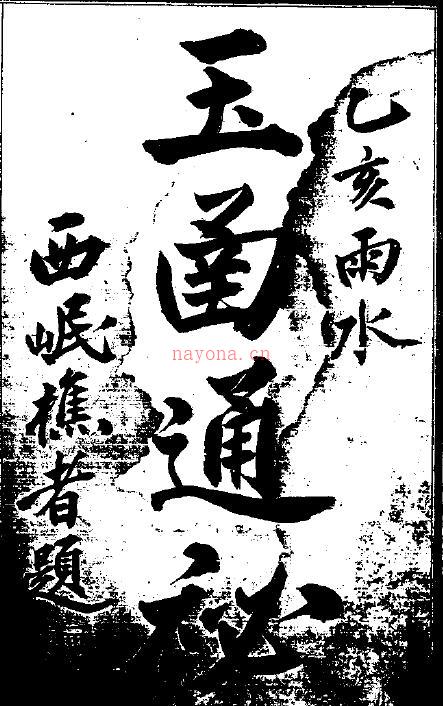 乙亥雨水
玉函通秘
西岷樵者題
nayona.cn